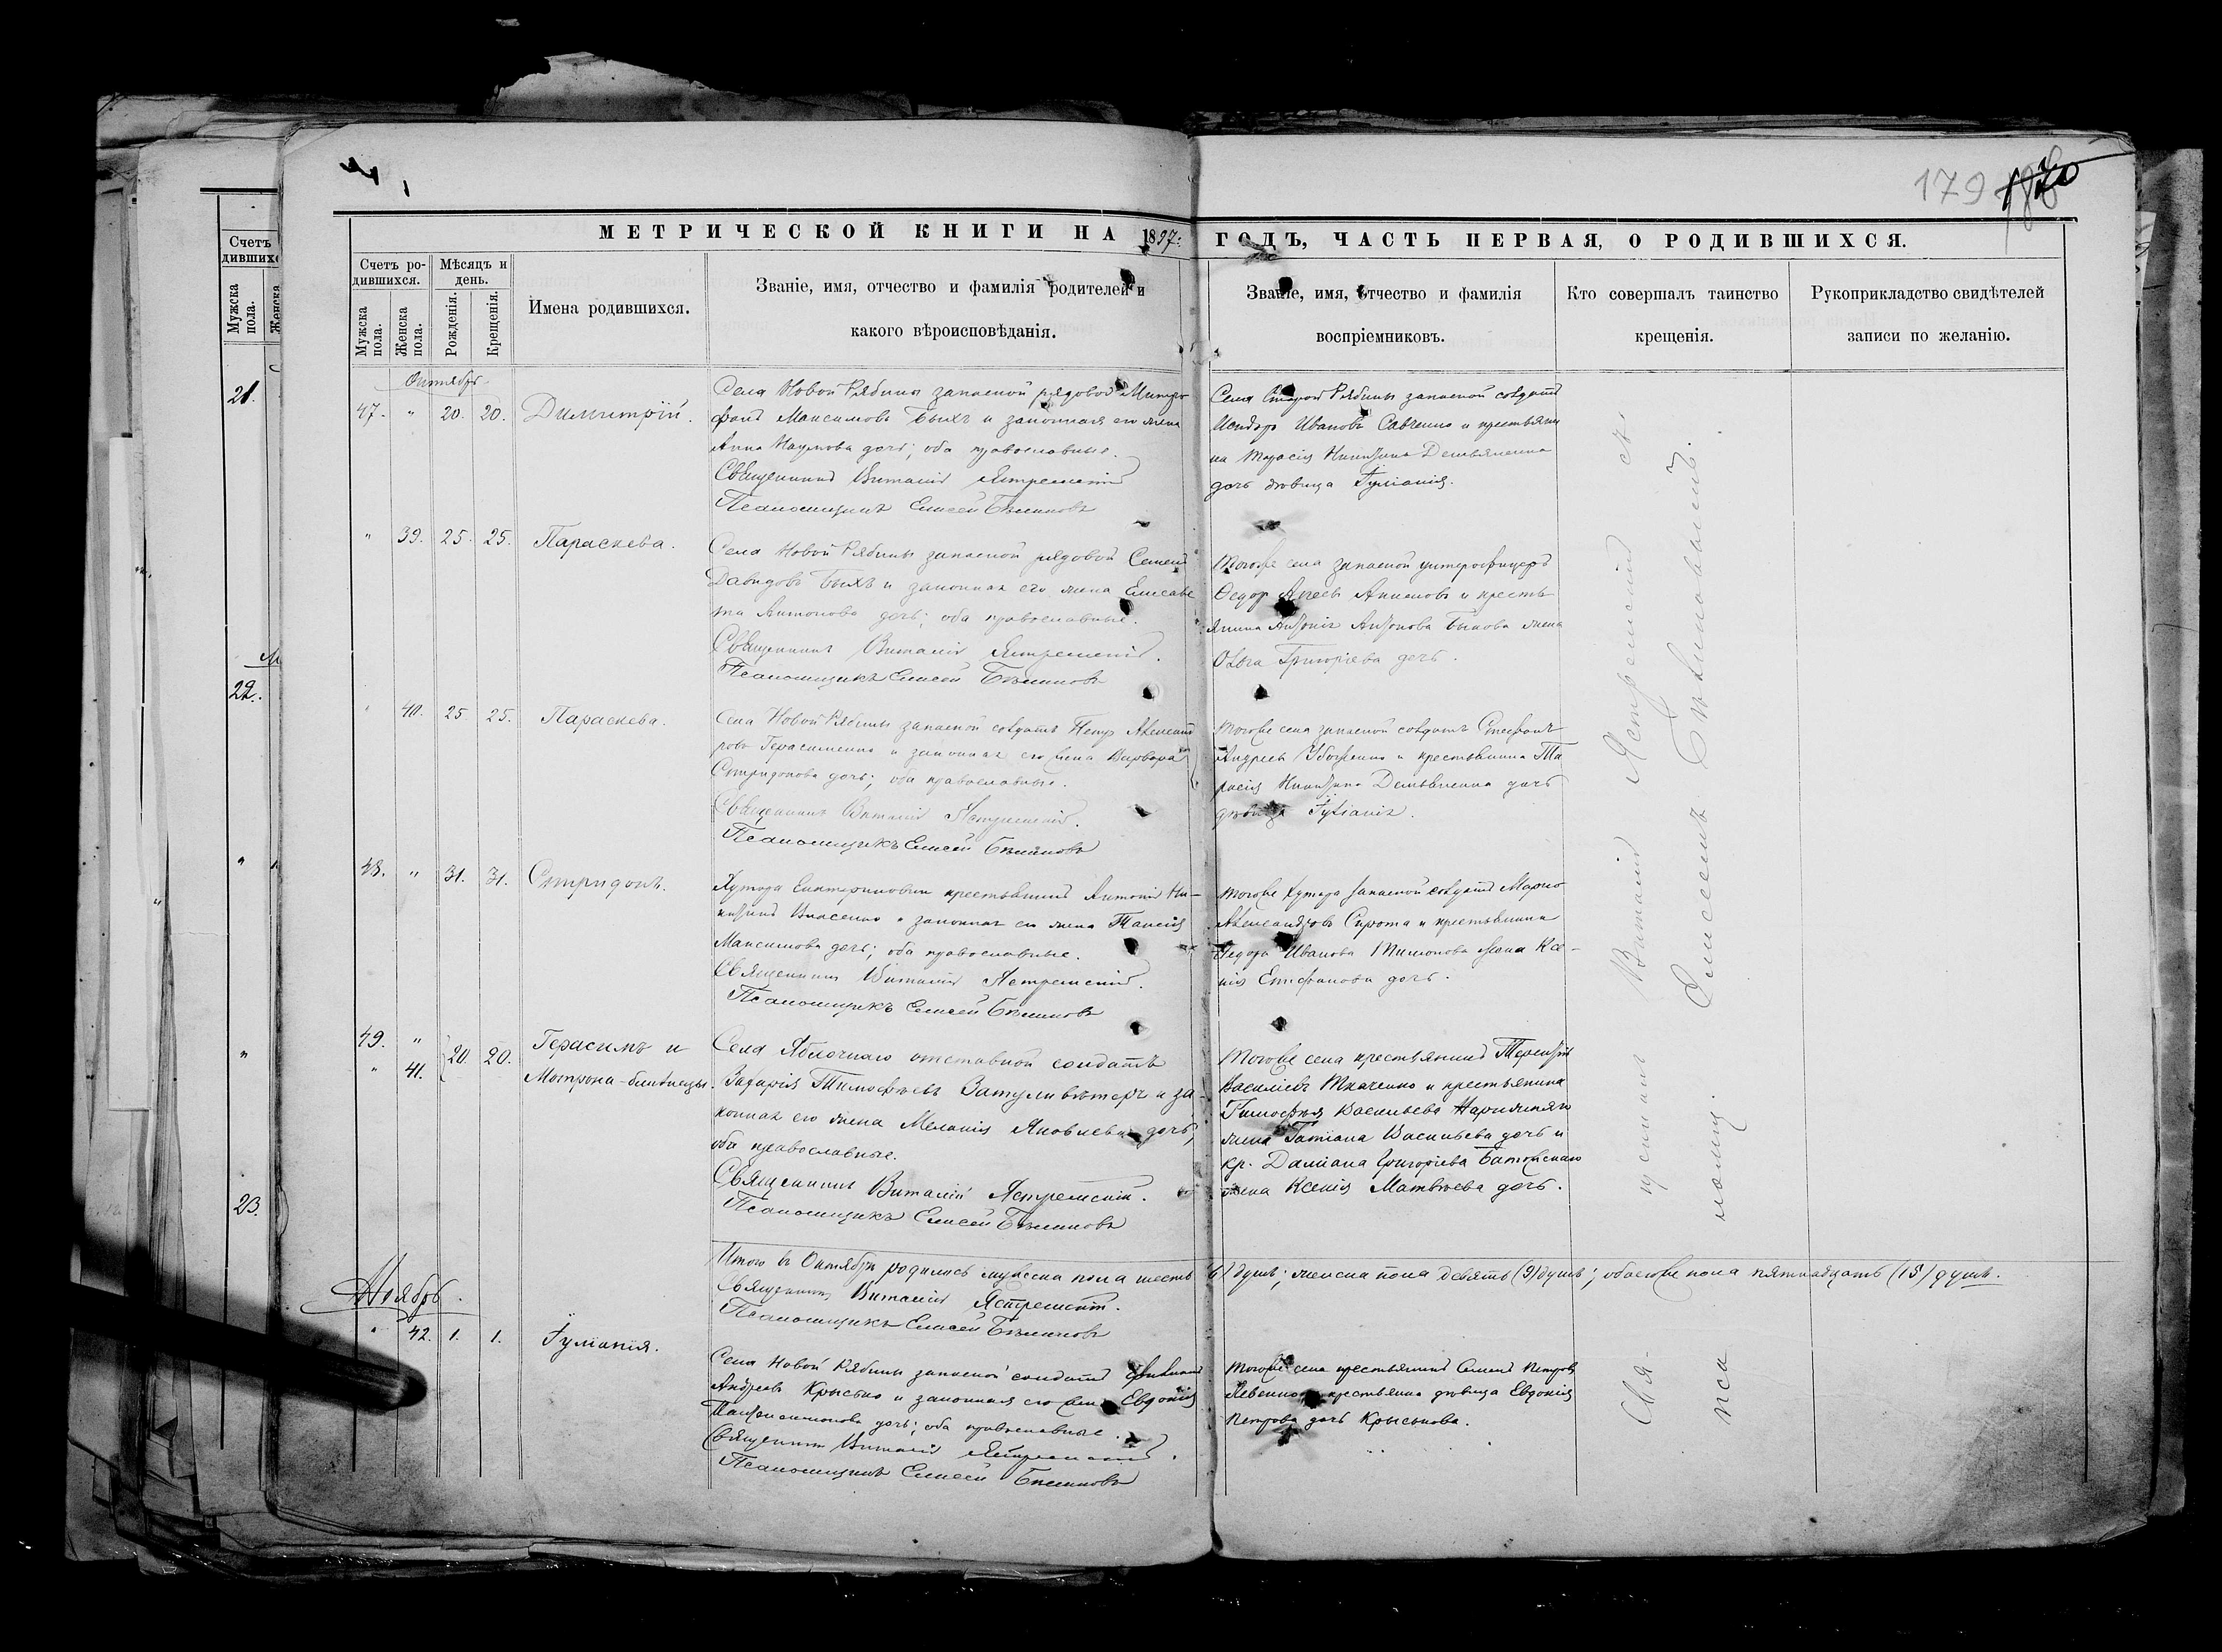 179
МЕТРИЧЕСКОЙ КНИГИ НА 1897: ГОДЪ, ЧАСТЬ ПЕРВАЯ, О РОДИВШИХСЯ.
Счетъ
дивших
Мужска пола.
Женска
21.
22.
23.
Счетъ ро-
дившихся.
Мѣсяцъ и
день.
Мужска пола.
Женска пола.
Рожденія.
Крещенія.
Имена родившихся.
Званіе, имя, отчество и фамилія родителей и
какого вѣроисповѣданія.
Званіе, имя, отчество и фамилія
воспріемниковъ.
Кто совершалъ таинство
крещенія.
Рукоприкладство свидѣтелей
записи по желанію.
Октябрь
47. " 20. 20. Димитрій.
Села Новой Рябины запасной рядовой Митро
фанъ Максимовъ Быхъ и законная его жена
Анна Наумова дочь; оба православные.
Священникъ Виталій Ястремскій
Псаломщикъ Елисей
Села Старой Рябины запасной солдатъ
Исидоръ Ивановъ Савченко и крестьяни
на Тарасія Никитина Демьяненка
дочь дѣвица Іуліанія.
" 39. 25. 25. Параскева.
Села Новой Рябины запасной рядовой Семенъ
Давидовъ Быхъ и законная его жена Елисаве
та Антонова дочь; оба православные.
Священникъ Виталій Ястремскій.
Псаломщикъ Елисей
Тогоже села запасной унтерофицеръ
Ѳедоръ и кресть
янина Антонія Антонова Быкова жена
Ольга Григоріева дочь.
" 40. 25. 25. Параскева.
Села Новой Рябины запасной солдатъ Петръ Александ
ровъ Герасименко и законная его жена Варвара
Спиридонова дочь; оба православные.
Священникъ Виталій Ястремскій.
Псаломщикъ Елисей
Тогоже села запасной солдатъ Стефанъ
Андреевъ Убоженко и крестьянина Та
расія Никитина Демьяненка дочь
дѣвица Іуліанія.
48. " 31. 31. Спиридонъ.
Хутора крестьянинъ Антоній Ни-
китинъ Власенко и законная его жена Таисія
Максимова дочь; оба православные.
Священникъ Виталій Ястремскій.
Псаломщикъ Елисей
Тогоже хутора запасной солдатъ
Александровъ Сирота и крестьянина
Ѳедора Иванова Тимонова жена Ксе-
нія Епифанова дочь.
49. "
" 41. 20. 20. Герасимъ и
Мотрона-близнецы.
Села Яблочнаго отставной солдатъ
Захарія Тимофѣевъ Затуливѣтеръ и за
конная его жена Меланія Яковлева дочь;
оба православные.
Священникъ Виталій Ястремскій.
Псаломщикъ Елисей
Тогоже села крестьянинъ Терентій
Василіевъ Ткаченко и крестьянина
Тимофѣя Васильева
жена Татіана Васильева дочь и
кр. Даміана Григоріева
жена Ксенія Матвѣева дочь.
Итого въ Октябрѣ родилось мужска пола шесть (6) душъ; женска пола девять (9) душъ; обоегоже пола пятнадцать (15) душъ.
Священникъ Виталій Ястремскій.
Псаломщикъ Елисей
Ноябрь.
" 42. 1. 1. Іуліанія.
Села Новой Рябины запасной солдатъ
Андреевъ Крысько и законная его жена Евдокія
дочь; оба православные.
Священникъ Виталій Ястремскій.
Псаломщикъ Елисей
Тогоже села крестьянинъ Семенъ Петровъ
Левенко и крестьянка дѣвица Евдокія
Петрова дочь Крыськова.
Свя-
щенникъ Виталій Ястремскій съ
пса
ломщ. Елисеемъ